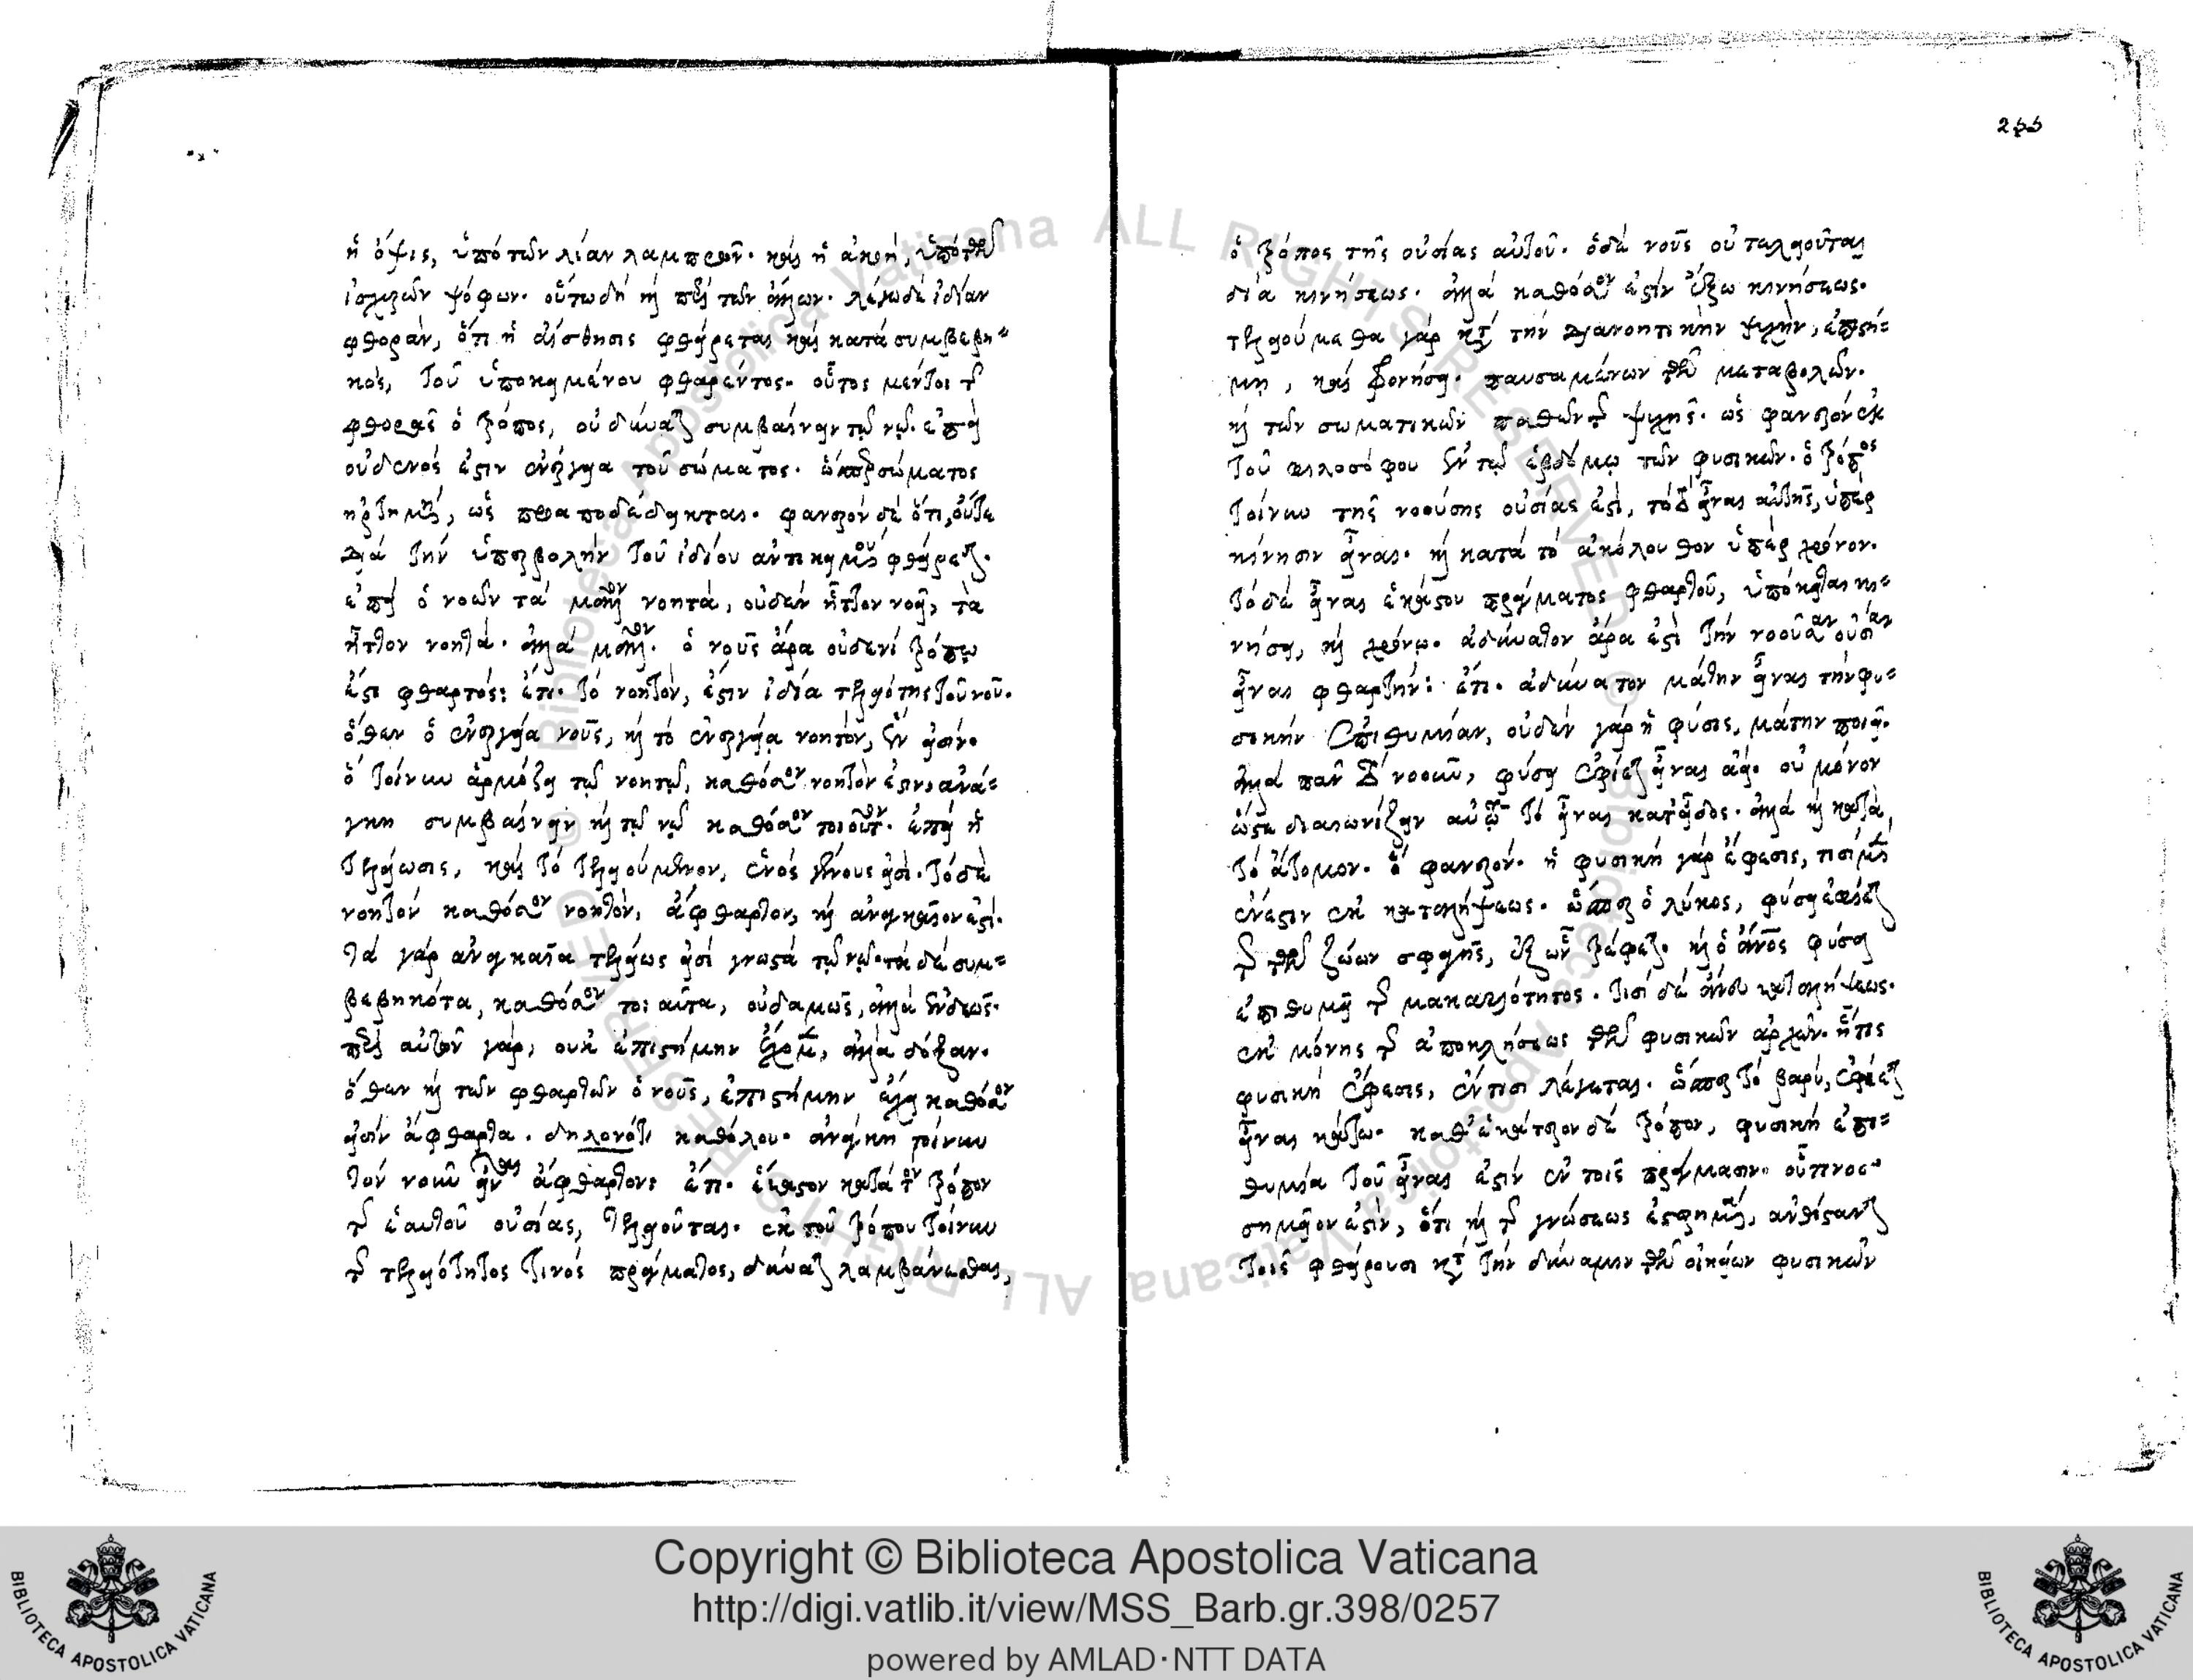 ἡ ὄψις, ὑπὸ τῶν λίαν λαμπρῶν. καὶ ἡ ἀκοὴ, ὑπὸ τῶν
ἰσχυρῶν ψόφων. οὕτω δὴ καὶ περὶ τῶν ἄλλων. λέγω δὲ ἰδίαν
φθορὰν, ὅτι ἡ αἴσθησις φθείρεται καὶ κατὰ συμβεβη=
κὸς, τοῦ ὑποκειμένου φθαρέντος. οὗτος μέντοι τῆς
φθορᾶς ὁ τρόπος, οὐ δύναται συμβαίνειν τῷ νῷ. ἐπεὶ
οὐδενός ἐστιν ἐνέργεια τοῦ σώματος. ὥσπερ σώματος
ὡς προαποδέδεικται. φανερὸν δὲ ὅτι, οὔτε
διὰ τὴν ὑπερβολὴν τοῦ ἰδίου ἀντικειμένου φθείρεται.
ἐπεὶ ὁ νοῶν τὰ μᾶλλον νοητὰ, οὐδὲν ἧττον νοεῖ, τὰ
ἧττον νοητά. ἀλλὰ μᾶλλον. ὁ νοῦς ἄρα οὐδενὶ τρόπῳ
ἐστὶ φθαρτός: ἔτι. τὸ νοητὸν, ἐστὶν ἰδία τελειότης τοῦ νοῦ.
ὅθεν ὁ ἐνεργείᾳ νοῦς, καὶ τὸ ἐνεργείᾳ νοητὸν, ἕν εἰσιν.
ὃ τοίνυν ἁρμόζει τῷ νοητῷ, καθόσον νοητόν ἐστιν, ἀνά=
γκη συμβαίνειν καὶ τῷ νῷ καθόσον τοιοῦτον. ἐπεὶ ἡ
τελείωσις, καὶ τὸ τελειούμενον, ἑνὸς γένους εἰσί. τὸ δὲ
νοητὸν καθόσον νοητὸν, ἄφθαρτον, καὶ ἀναγκαῖόν ἐστι.
τὰ γὰρ ἀναγκαῖα τελείως εἰσὶ γνωστὰ τῷ νῷ. τὰ δὲ συμ=
βεβηκότα, καθόσον τοιαῦτα, οὐδαμῶς, ἀλλὰ ἐνδεῶς.
περὶ αὐτῶν γὰρ, οὐκ ἐπιστήμην ἔχομεν, ἀλλὰ δόξαν.
ὅθεν καὶ τῶν φθαρτῶν ὁ νοῦς, ἐπιστήμην ἔχει καθόσον
εἰσὶν ἄφθαρτα. δηλονότι καθόλου. ἀνάγκη τοίνυν
τὸν νοῦν εἶναι ἄφθαρτον: ἔτι. ἕκαστον κατὰ τὸν τρόπον
τῆς ἑαυτοῦ οὐσίας, τελειοῦται. ἐκ τοῦ τρόπου τοίνυν
τῆς τελειότητος τινὸς πράγματος, δύναται λαμβάνεσθαι,
255
ὁ τρόπος τῆς οὐσίας αὐτοῦ. ὁ δὲ νοῦς οὐ τελειοῦται
διὰ κινήσεως. ἀλλὰ καθόσον ἐστὶν ἔξω κινήσεως.
τελειούμεθα γὰρ κατὰ τὴν διανοητικὴν ψυχὴν, ἐπιστή=
μῃ, καὶ φρονήσει. παυσαμένων τῶν μεταβολῶν.
καὶ τῶν σωματικῶν παθῶν τῆς ψυχῆς. ὡς φανερὸν ἐκ
τοῦ φιλοσόφου ἐν τῷ ἑβδόμῳ τῶν φυσικῶν. ὁ τρόπος
τοίνυν τῆς νοούσης οὐσίας ἐστὶ, τὸ εἶναι αὐτῆς, ὑπὲρ
κίνησιν εἶναι. καὶ κατὰ τὸ ἀκόλουθον ὑπὲρ χρόνον.
τὸ δὲ εἶναι ἑκάστου πράγματος φθαρτοῦ, ὑπόκειται κι=
νήσει, καὶ χρόνῳ. ἀδύνατον ἄρα ἐστὶ τὴν νοοῦσαν οὐσίαν
εἶναι φθαρτήν: ἔτι. ἀδύνατον μάτην εἶναι τὴν φυ=
σικὴν ἐπιθυμίαν, οὐδὲν γὰρ ἡ φύσις, μάτην ποιεῖ.
ἀλλὰ πᾶν τὸ νοοῦν, φύσει ἐφίεται εἶναι ἀεί. οὐ μόνον
ὥστε διαιωνίζειν αὐτῷ τὸ εἶναι κατ' εἶδος. ἀλλὰ καὶ κατὰ
τὸ ἄτομον. ὃ φανερόν. ἡ φυσικὴ γὰρ ἔφεσις, τισὶ μὲν
ἔνεστιν ἐκ καταλήψεως. ὥσπερ ὁ λύκος, φύσει ἐφίεται
τῆς τῶν ζώων σφαγῆς, ἐξ ὧν τρέφεται. καὶ ὁ ἄνθρωπος φύσει
ἐπιθυμεῖ τῆς μακαριότητος. τισὶ δὲ ἄνευ καταλήψεως.
ἐκ μόνης τῆς ἀποκλήσεως τῶν φυσικῶν ἀρχῶν. ἥτις
φυσικὴ ἔφεσις, ἔν τισι λέγεται. ὥσπερ τὸ βαρὺ, ἐφίεται
εἶναι κάτω. καθ' ἑκάτερον δὲ τρόπον, φυσικὴ ἐπι=
θυμία τοῦ εἶναι ἐστὶν ἐν τοῖς πράγμασιν. οὗτινος
σημεῖόν ἐστιν, ὅτι καὶ τὰ τῆς γνώσεως ἐστερημένα, ἀνθίσταται
τοῖς φθείρουσι κατὰ τὴν δύναμιν τῶν οἰκείων φυσικῶν
Copyright © Biblioteca Apostolica Vaticana
http://digi.vatlib.it/view/MSS_Barb.gr.398/0257
powered by AMLAD·NTT DATA
BIBLIOTECA APOSTOLICA VATICANA
BIBLIOTECA APOSTOLICA VATICANA